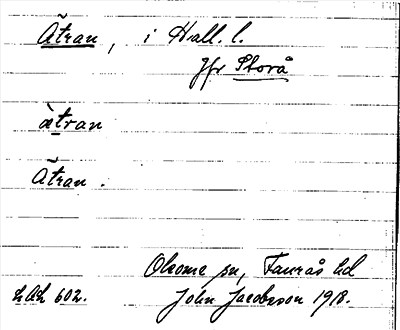 Ätran, i Hall. l.
Jfr Storå
ætran
Ätran.
Okome sn, Faurås hd
LAL 602. John Jacobsson 1918.